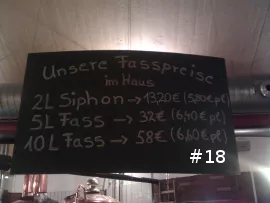 Unsere Fasspreise
im Haus
2L Siphon → 13,20€ (5,80€ pf)
5L Fass → 32€ (6,40€ pf)
10L Fass → 58€ (6,60€ pf)
#18